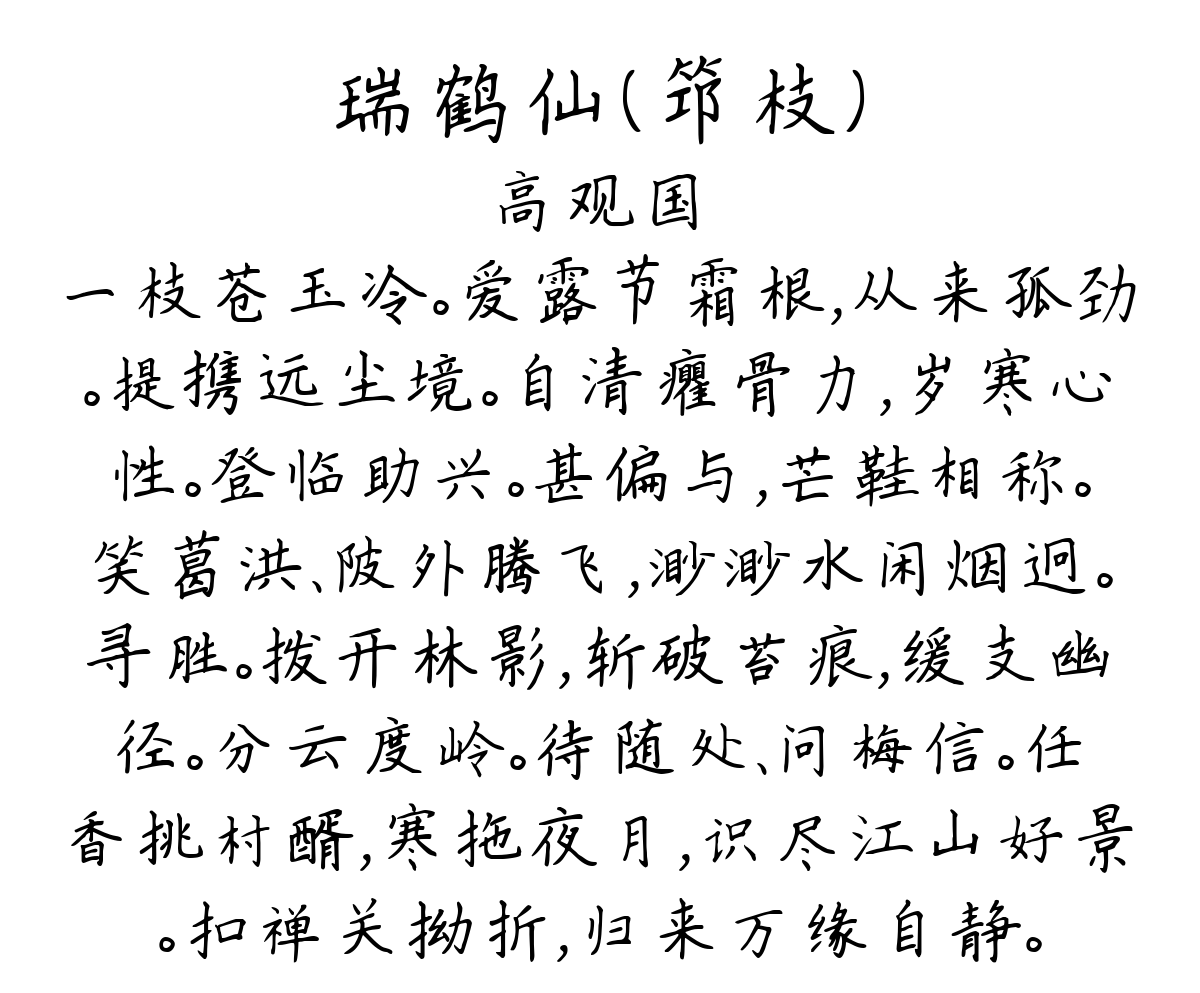 瑞鹤仙(筇枝)
高观国
一枝苍玉冷。爱露节霜根,从来孤劲
。提携远尘境。自清癯骨力,岁寒心
性。登临助兴。甚偏与,芒鞋相称。
笑葛洪、陂外腾飞,渺渺水闲烟迥。
寻胜。拨开林影,斩破苔痕,缓支幽
径。分云度岭。待随处、问梅信。任
香挑村醑,寒拖夜月,识尽江山好景
。扣禅关拗折,归来万缘自静。